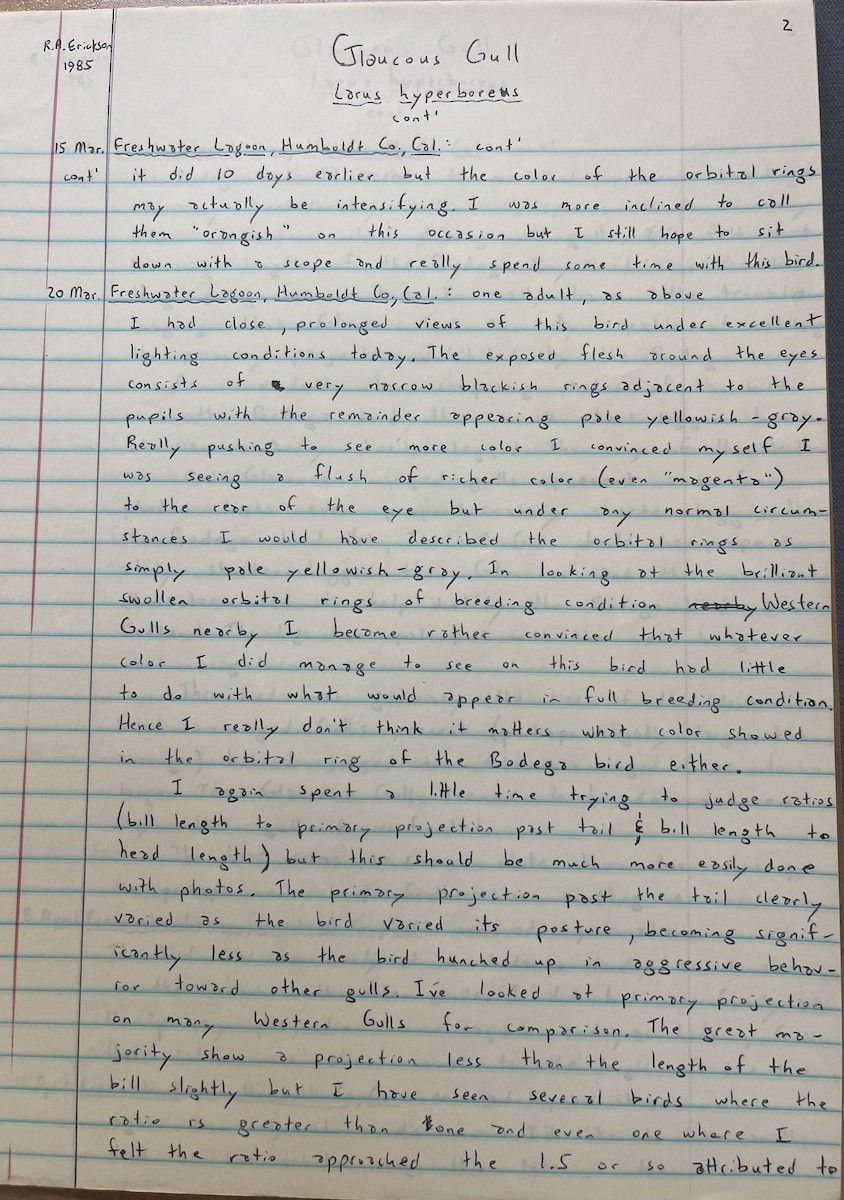 2
R.A. Erickson
1985
Glaucous Gull
Larus hyperboreus
cont'
15 Mar. Freshwater Lagoon, Humboldt Co., Cal.: cont'
cont' it did 10 days earlier but the color of the orbital rings
may actually be intensifying. I was more inclined to call
them "orangish" on this occasion but I still hope to sit
down with a scope and really spend some time with this bird.
20 Mar. Freshwater Lagoon, Humboldt Co., Cal.: one adult, as above
I had close, prolonged views of this bird under excellent
lighting conditions today. The exposed flesh around the eyes
consists of very narrow blackish rings adjacent to the
pupils with the remainder appearing pale yellowish-gray.
Really pushing to see more color I convinced myself I
was seeing a flush of richer color (even "magenta")
to the rear of the eye but under any normal circum-
stances I would have described the orbital rings as
simply pale yellowish-gray. In looking at the brilliant
swollen orbital rings of breeding condition nearby Western
Gulls nearby I became rather convinced that whatever
color I did manage to see on this bird had little
to do with what would appear in full breeding condition.
Hence I really don't think it matters what color showed
in the orbital ring of the Bodega bird either.
I again spent a little time trying to judge ratios
(bill length to primary projection past tail & bill length to
head length) but this should be much more easily done
with photos. The primary projection past the tail clearly
varied as the bird varied its posture, becoming signif-
icantly less as the bird hunched up in aggressive behav-
ior toward other gulls. I've looked at primary projection
on many Western Gulls for comparison. The great ma-
jority show a projection less than the length of the
bill slightly but I have seen several birds where the
ratio is greater than one and even one where I
felt the ratio approached the 1.5 or so attributed to